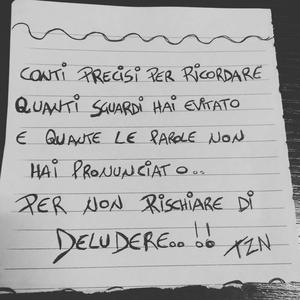 CONTI PRECISI PER RICORDARE
QUANTI SGUARDI HAI EVITATO
E QUANTE LE PAROLE NON
HAI PRONUNCIATO..
PER NON RISCHIARE DI
DELUDERE..!! TZN